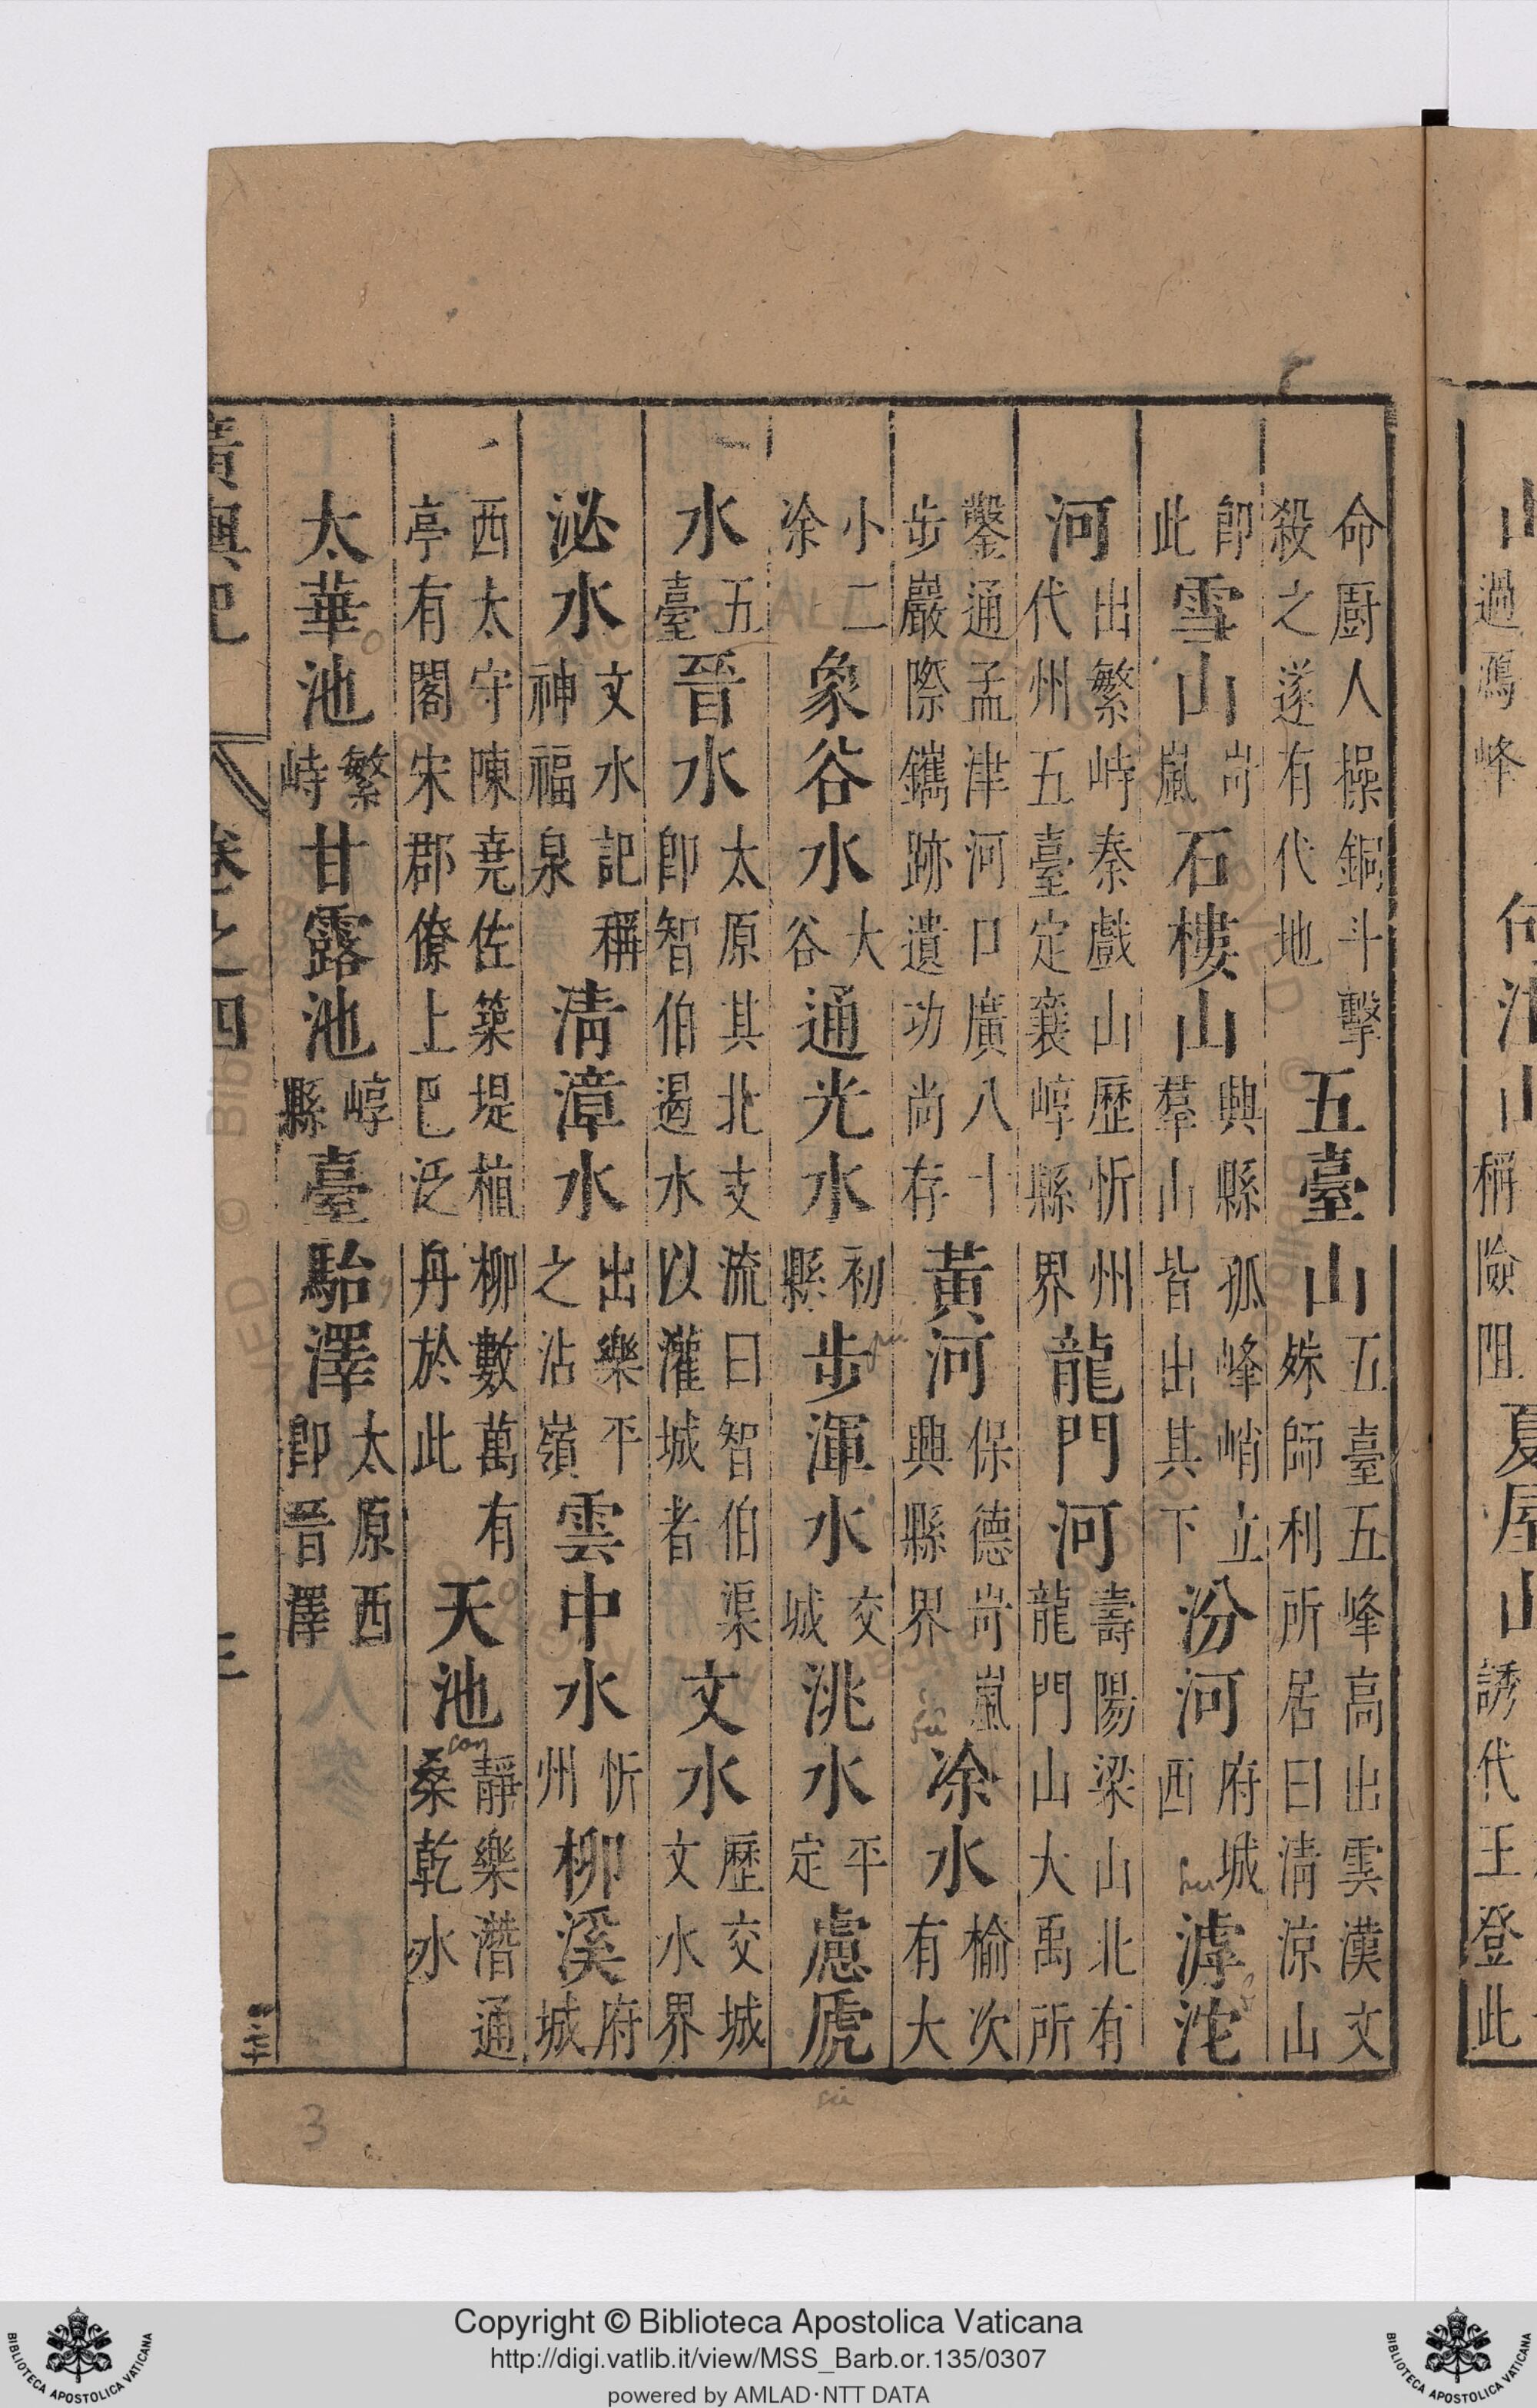 山過鴈峰句注山稱險阻夏屋山誘代王登此
命廚人操銅斗擊殺之遂有代地五臺山五臺五峰高出雲漢文殊師利所居曰清涼山
卽此雪山岢嵐石樓山興縣孤峰峭立羣山皆出其下汾河府城西滹沱
河出繁峙秦戲山歷忻州代州五臺定襄崞縣界龍門河壽陽梁山北有龍門山大禹所
鑿通孟津河口廣八十步巖際鐫跡遺功尚存黃河保德岢嵐興縣界涂水榆次有大
小二涂象谷水大谷通光水初縣步渾水交城洮水平定慮虒
水五臺晉水太原其北支流曰智伯渠卽智伯遏水以灌城者文水歷交城文水界
泌水文水記稱神福泉清漳水出樂平之沾嶺雲中水忻州柳溪府城
西太守陳堯佐築堤植柳數萬有亭有閣宋郡僚上巳泛舟於此天池靜樂潛通桑乾水
太華池繁峙甘露池崞縣臺駘澤太原西卽晉澤
廣輿記 卷之四 三
3
Copyright © Biblioteca Apostolica Vaticana
http://digi.vatlib.it/view/MSS_Barb.or.135/0307
powered by AMLAD·NTT DATA
BIBLIOTECA APOSTOLICA VATICANA
BIBLIOTECA APOSTOLICA VATICANA